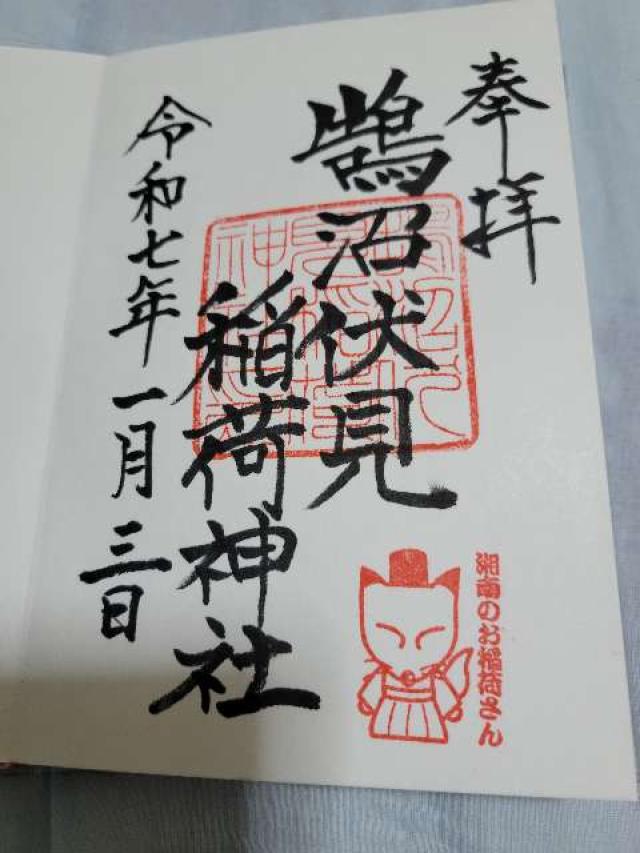 奉拝
鵠沼伏見
稲荷神社
令和七年一月三日
湘南のお稲荷さん